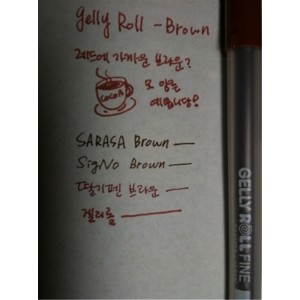 Gelly Roll - Brown
레드에 가까운 브라운?
COCOA
모양은
예쁩니당!
SARASA Brown —
SigNo Brown —
딸기펜 브라운 —
겔리롤 ———
GELLY ROLL FINE